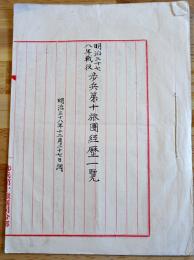 明治三十七
八年戦役
歩兵第十旅團經歴一覽
明治三十八年十二月二十七日調